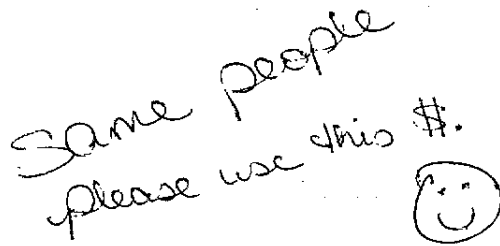 Same people
please use this $.